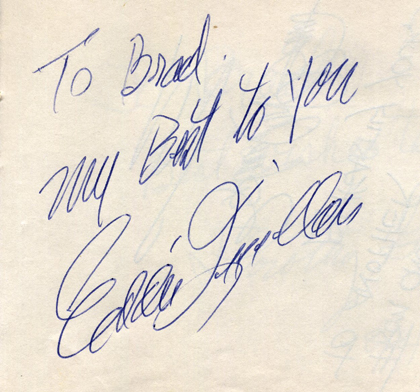 To Brad.
my Best to you
Eddie Quillan